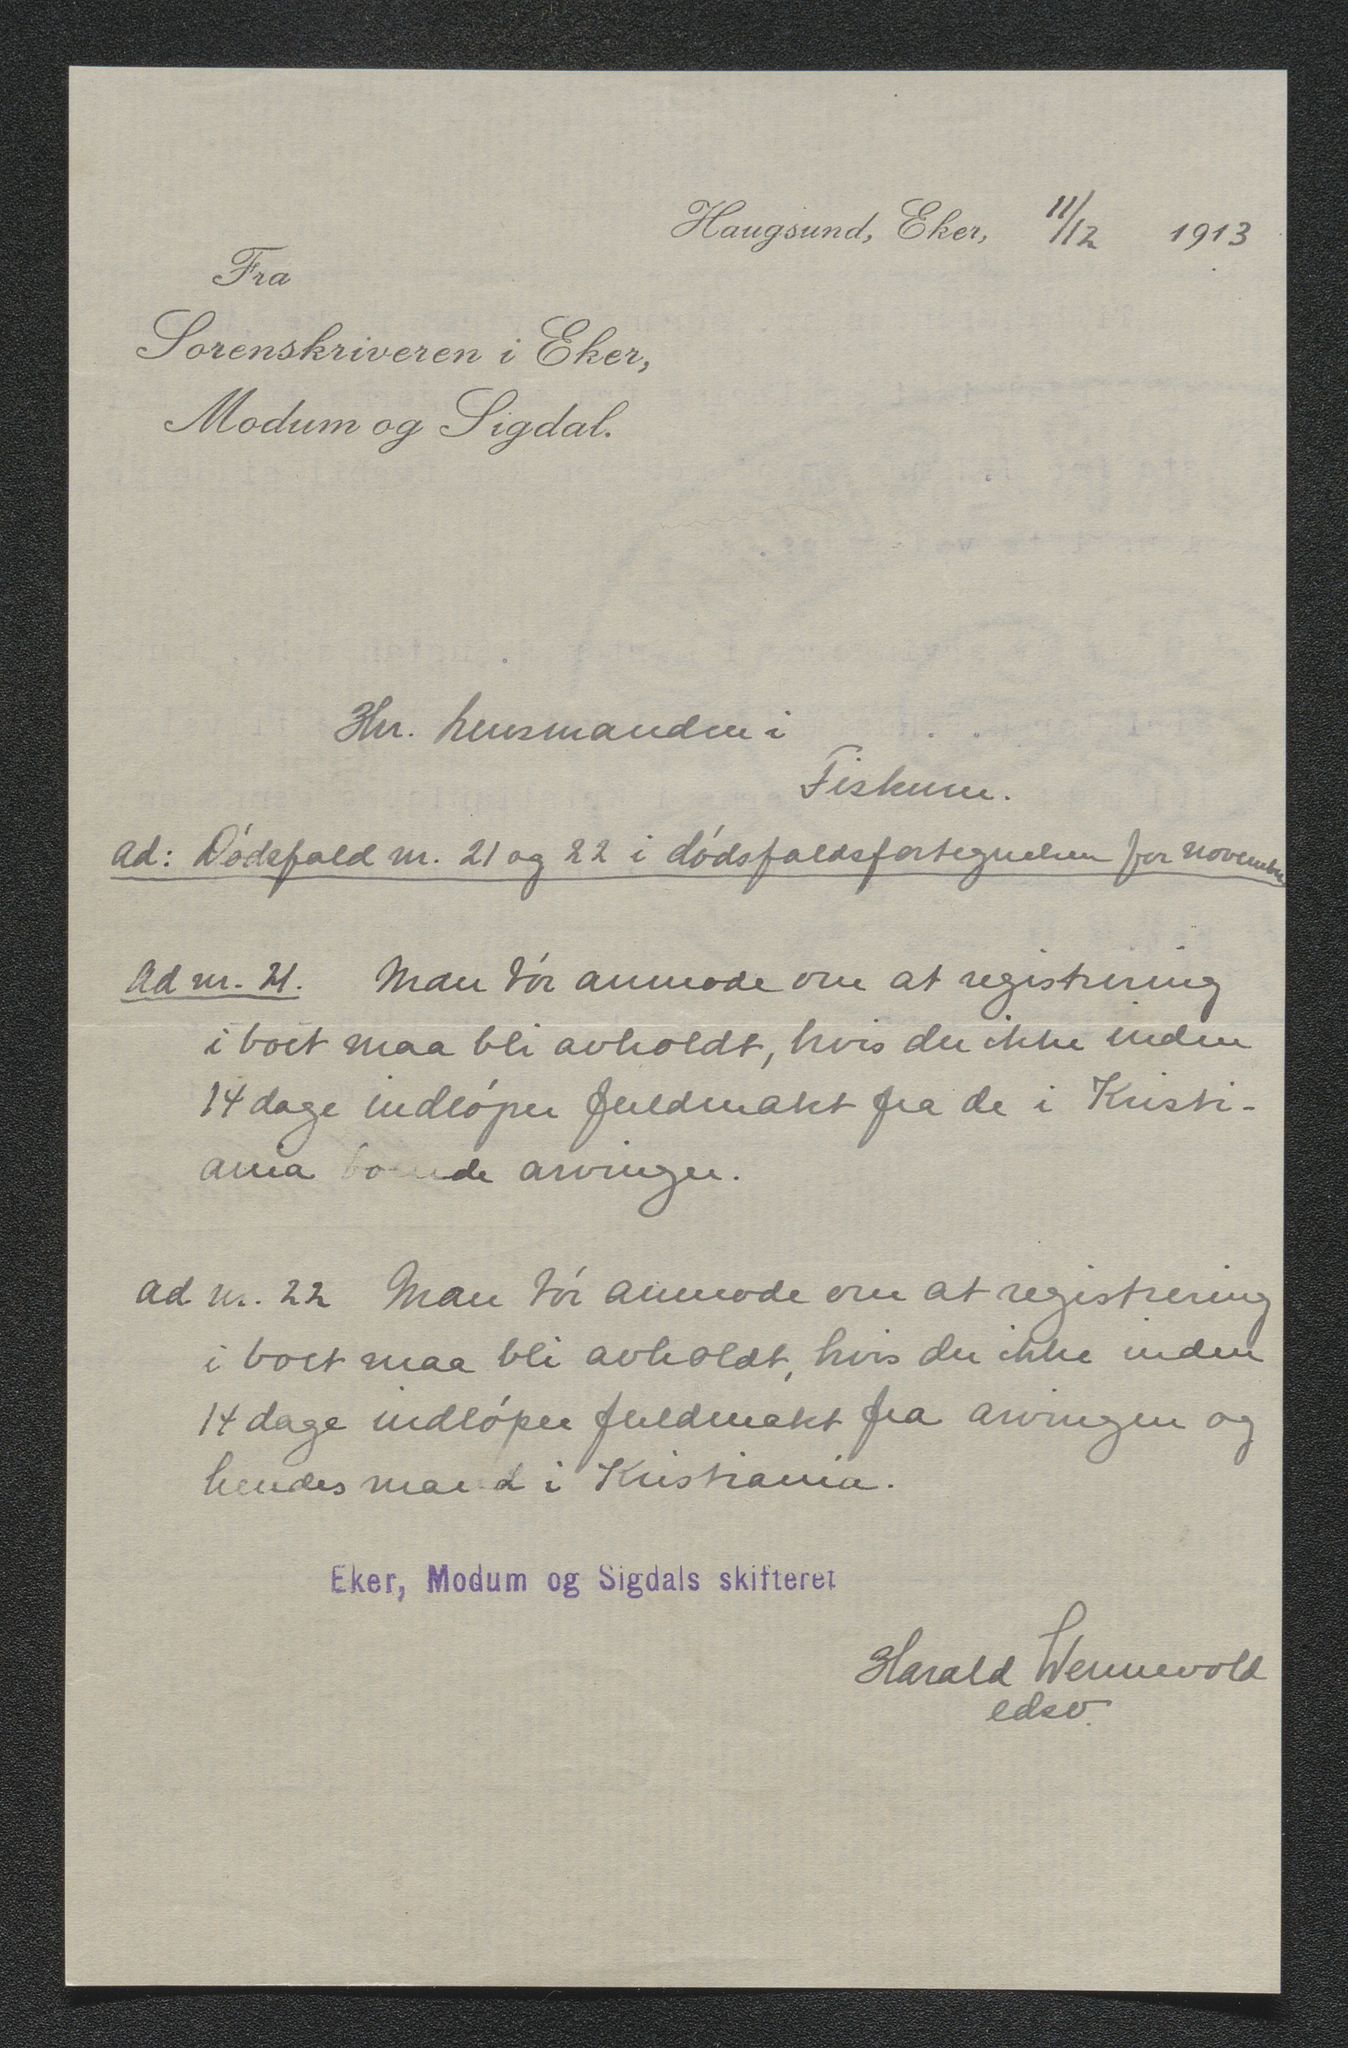 Haugsund, Eker, 11/12 1913
Fra
Sorenskriveren i Eker,
Modum og Sigdal.
Hr. lensmanden i
Fiskum.
ad: Dødsfald nr. 21 og 22 i dødsfaldsfortegnelsen for november
Ad nr. 21. Man tør anmode om at registrering
i boet maa bli avholdt, hvis der ikke inden
14 dage indløper fuldmakt fra de i Kristi-
ania boende arvinger.
ad nr. 22 Man tør anmode om at registrering
i boet maa bli avholdt, hvis der ikke inden
14 dage indløper fuldmakt fra arvingen og
hendes mand i Kristiania.
Eker, Modum og Sigdals skifteret
Harald Wennevold
edsv.